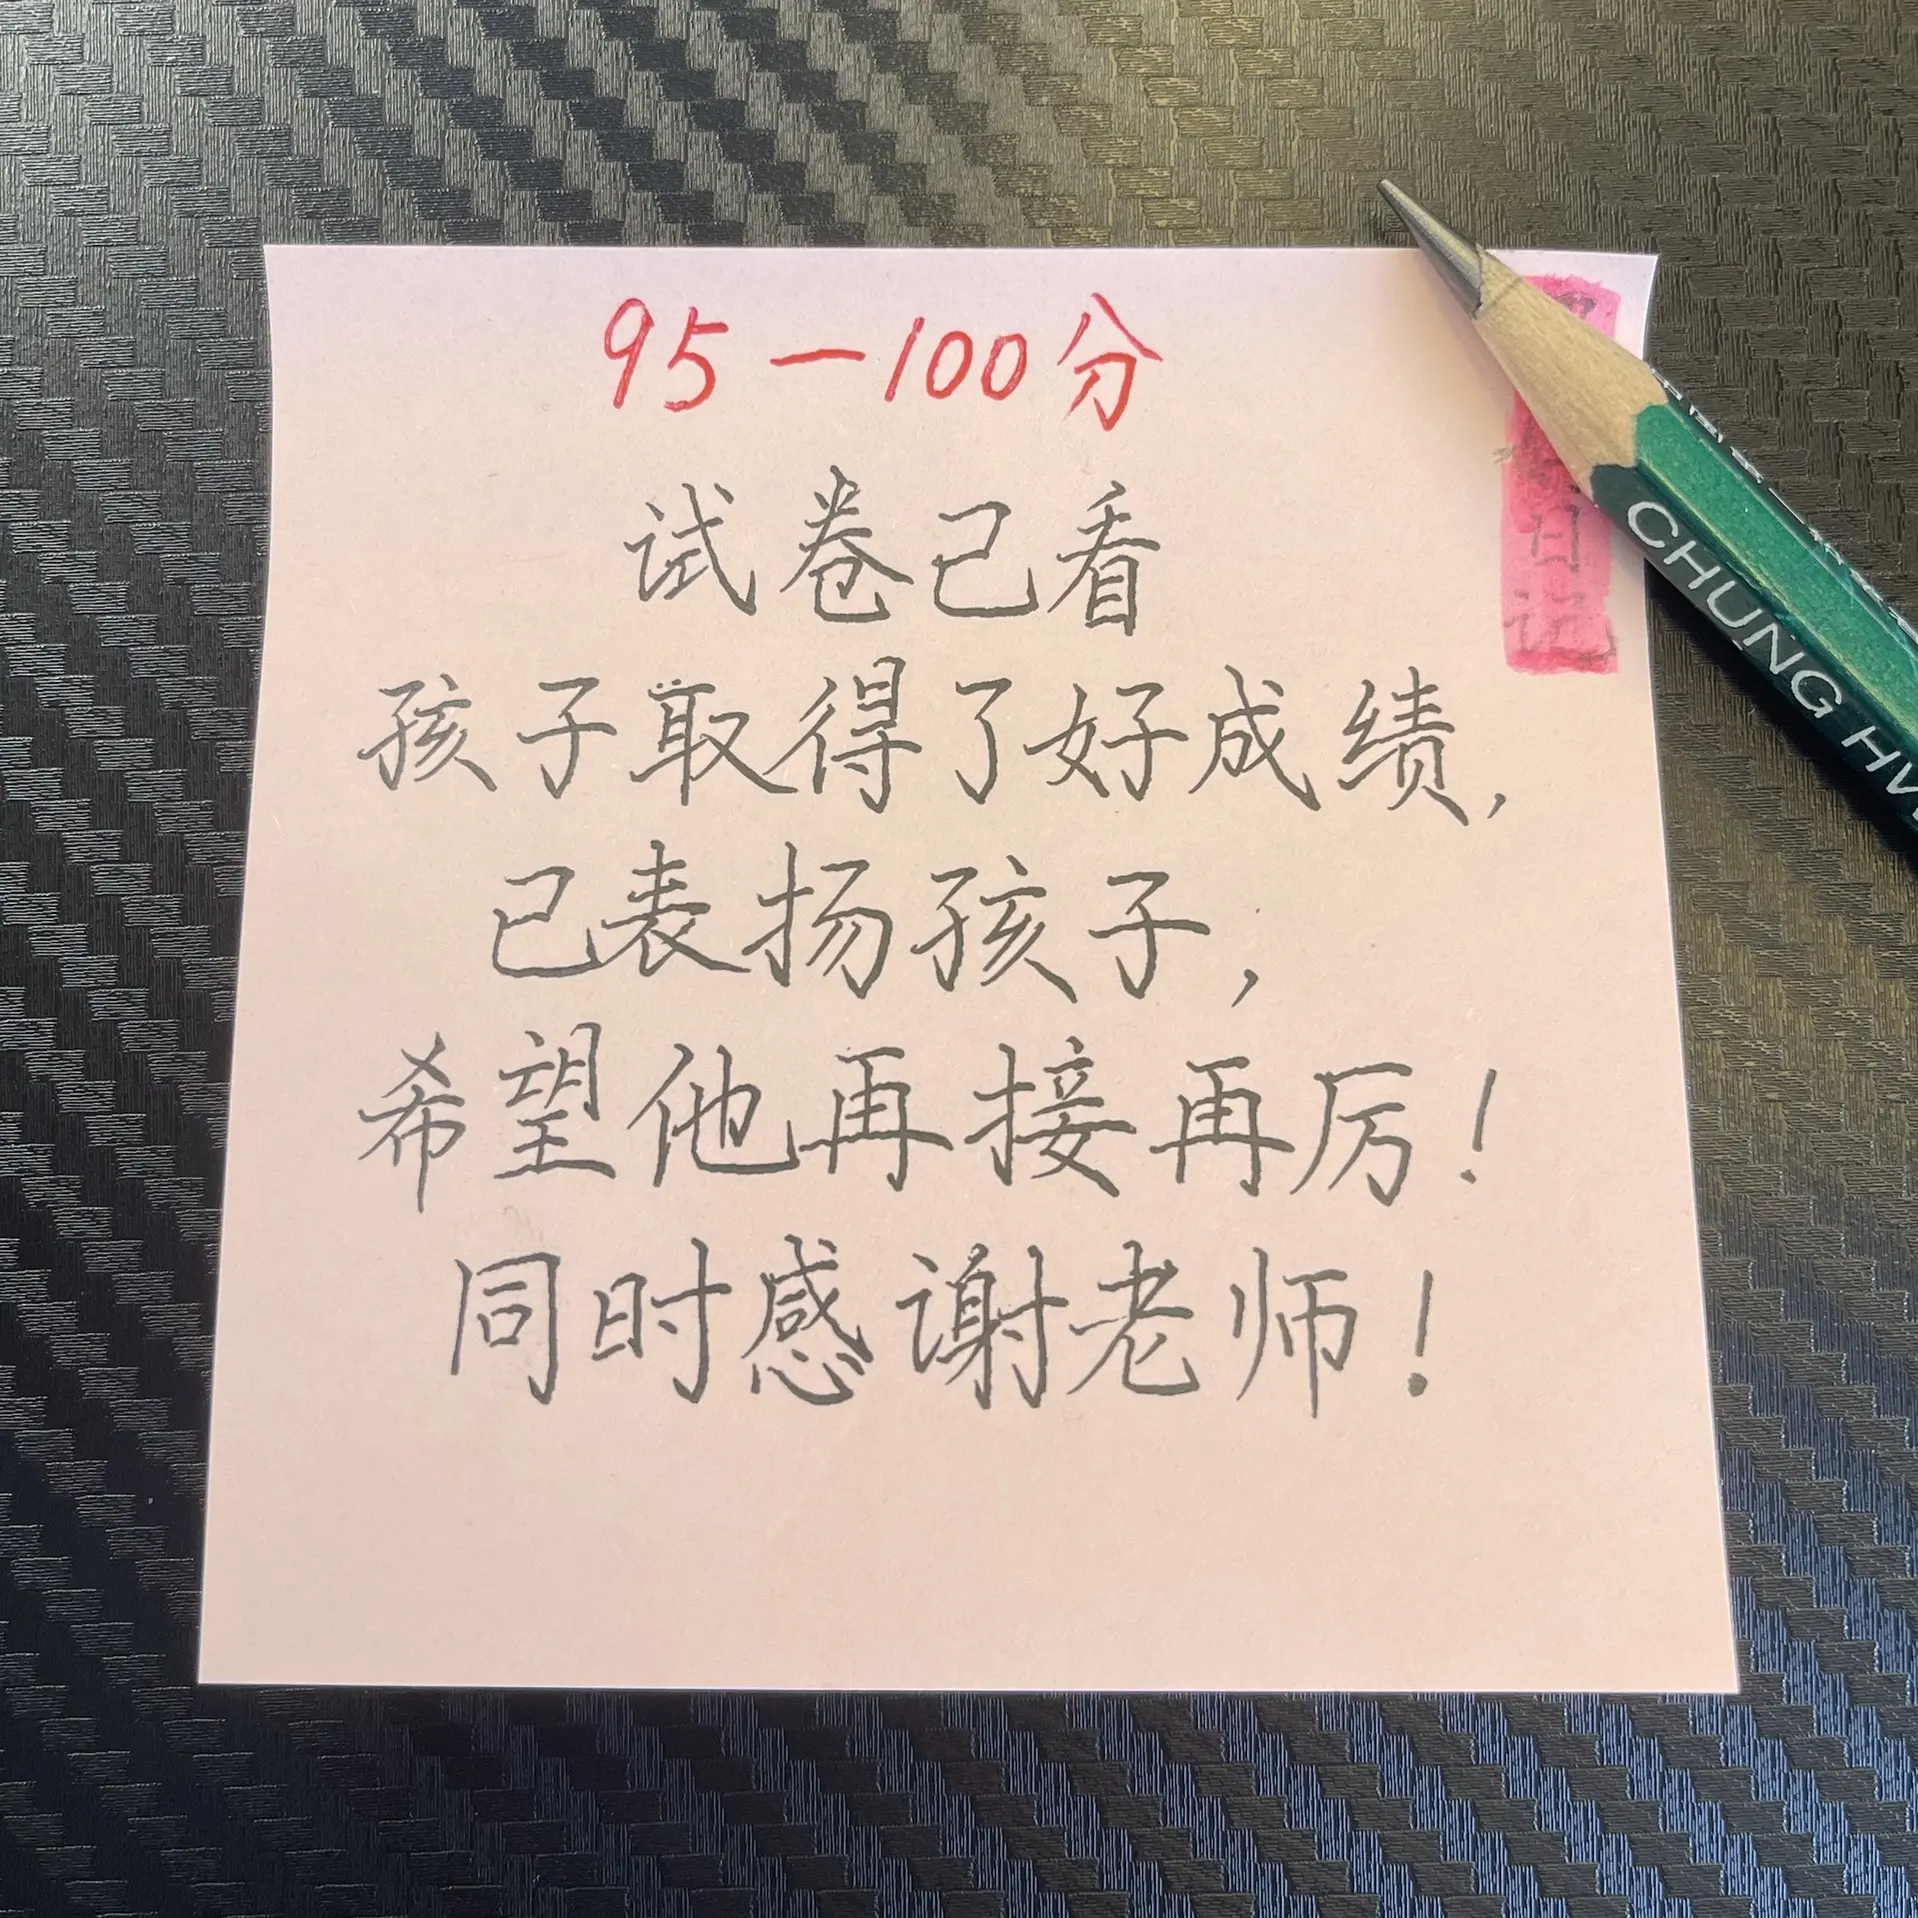 95—100分
试卷已看
孩子取得了好成绩,
已表扬孩子,
希望他再接再厉!
同时感谢老师!
日记
CHUNG HW